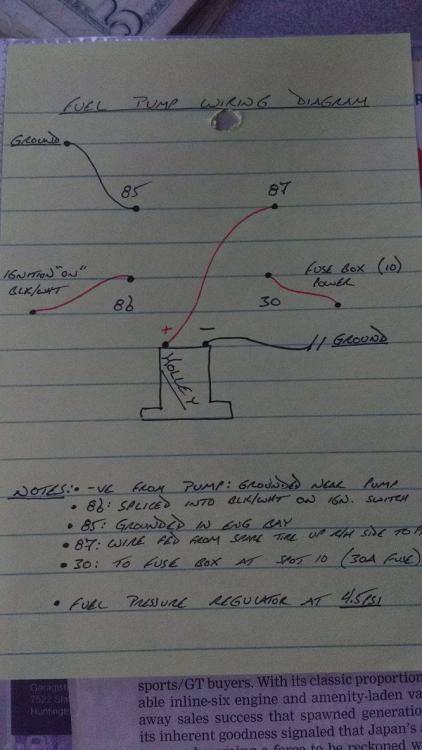 FUEL PUMP WIRING DIAGRAM
GROUND
85
87
IGNITION "ON"
BLK/WHT
86
FUSE BOX (10)
POWER
30
+ -
HOLLEY
GROUND
NOTES: • -VE FROM PUMP: GROUNDED NEAR PUMP
• 86: SPLICED INTO BLK/WHT ON IGN. SWITCH
• 85: GROUNDED IN ENG BAY
• 87: WIRE FED FROM SPARE TIRE UP R/H SIDE TO
• 30: TO FUSE BOX AT SPOT 10 (30A FUSE)
• FUEL PRESSURE REGULATOR AT 4.5PSI
Garagist
7522 Sla
Huntingt
sports/GT buyers. With its classic proportion
able inline-six engine and amenity-laden va
away sales success that spawned generatio
its inherent goodness signaled that Japan's a
force to be reckoned w